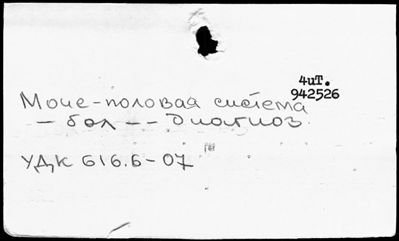 4иТ.
942526
Моче-половая система
– бол – – Диагноз
УДК 616.6-07